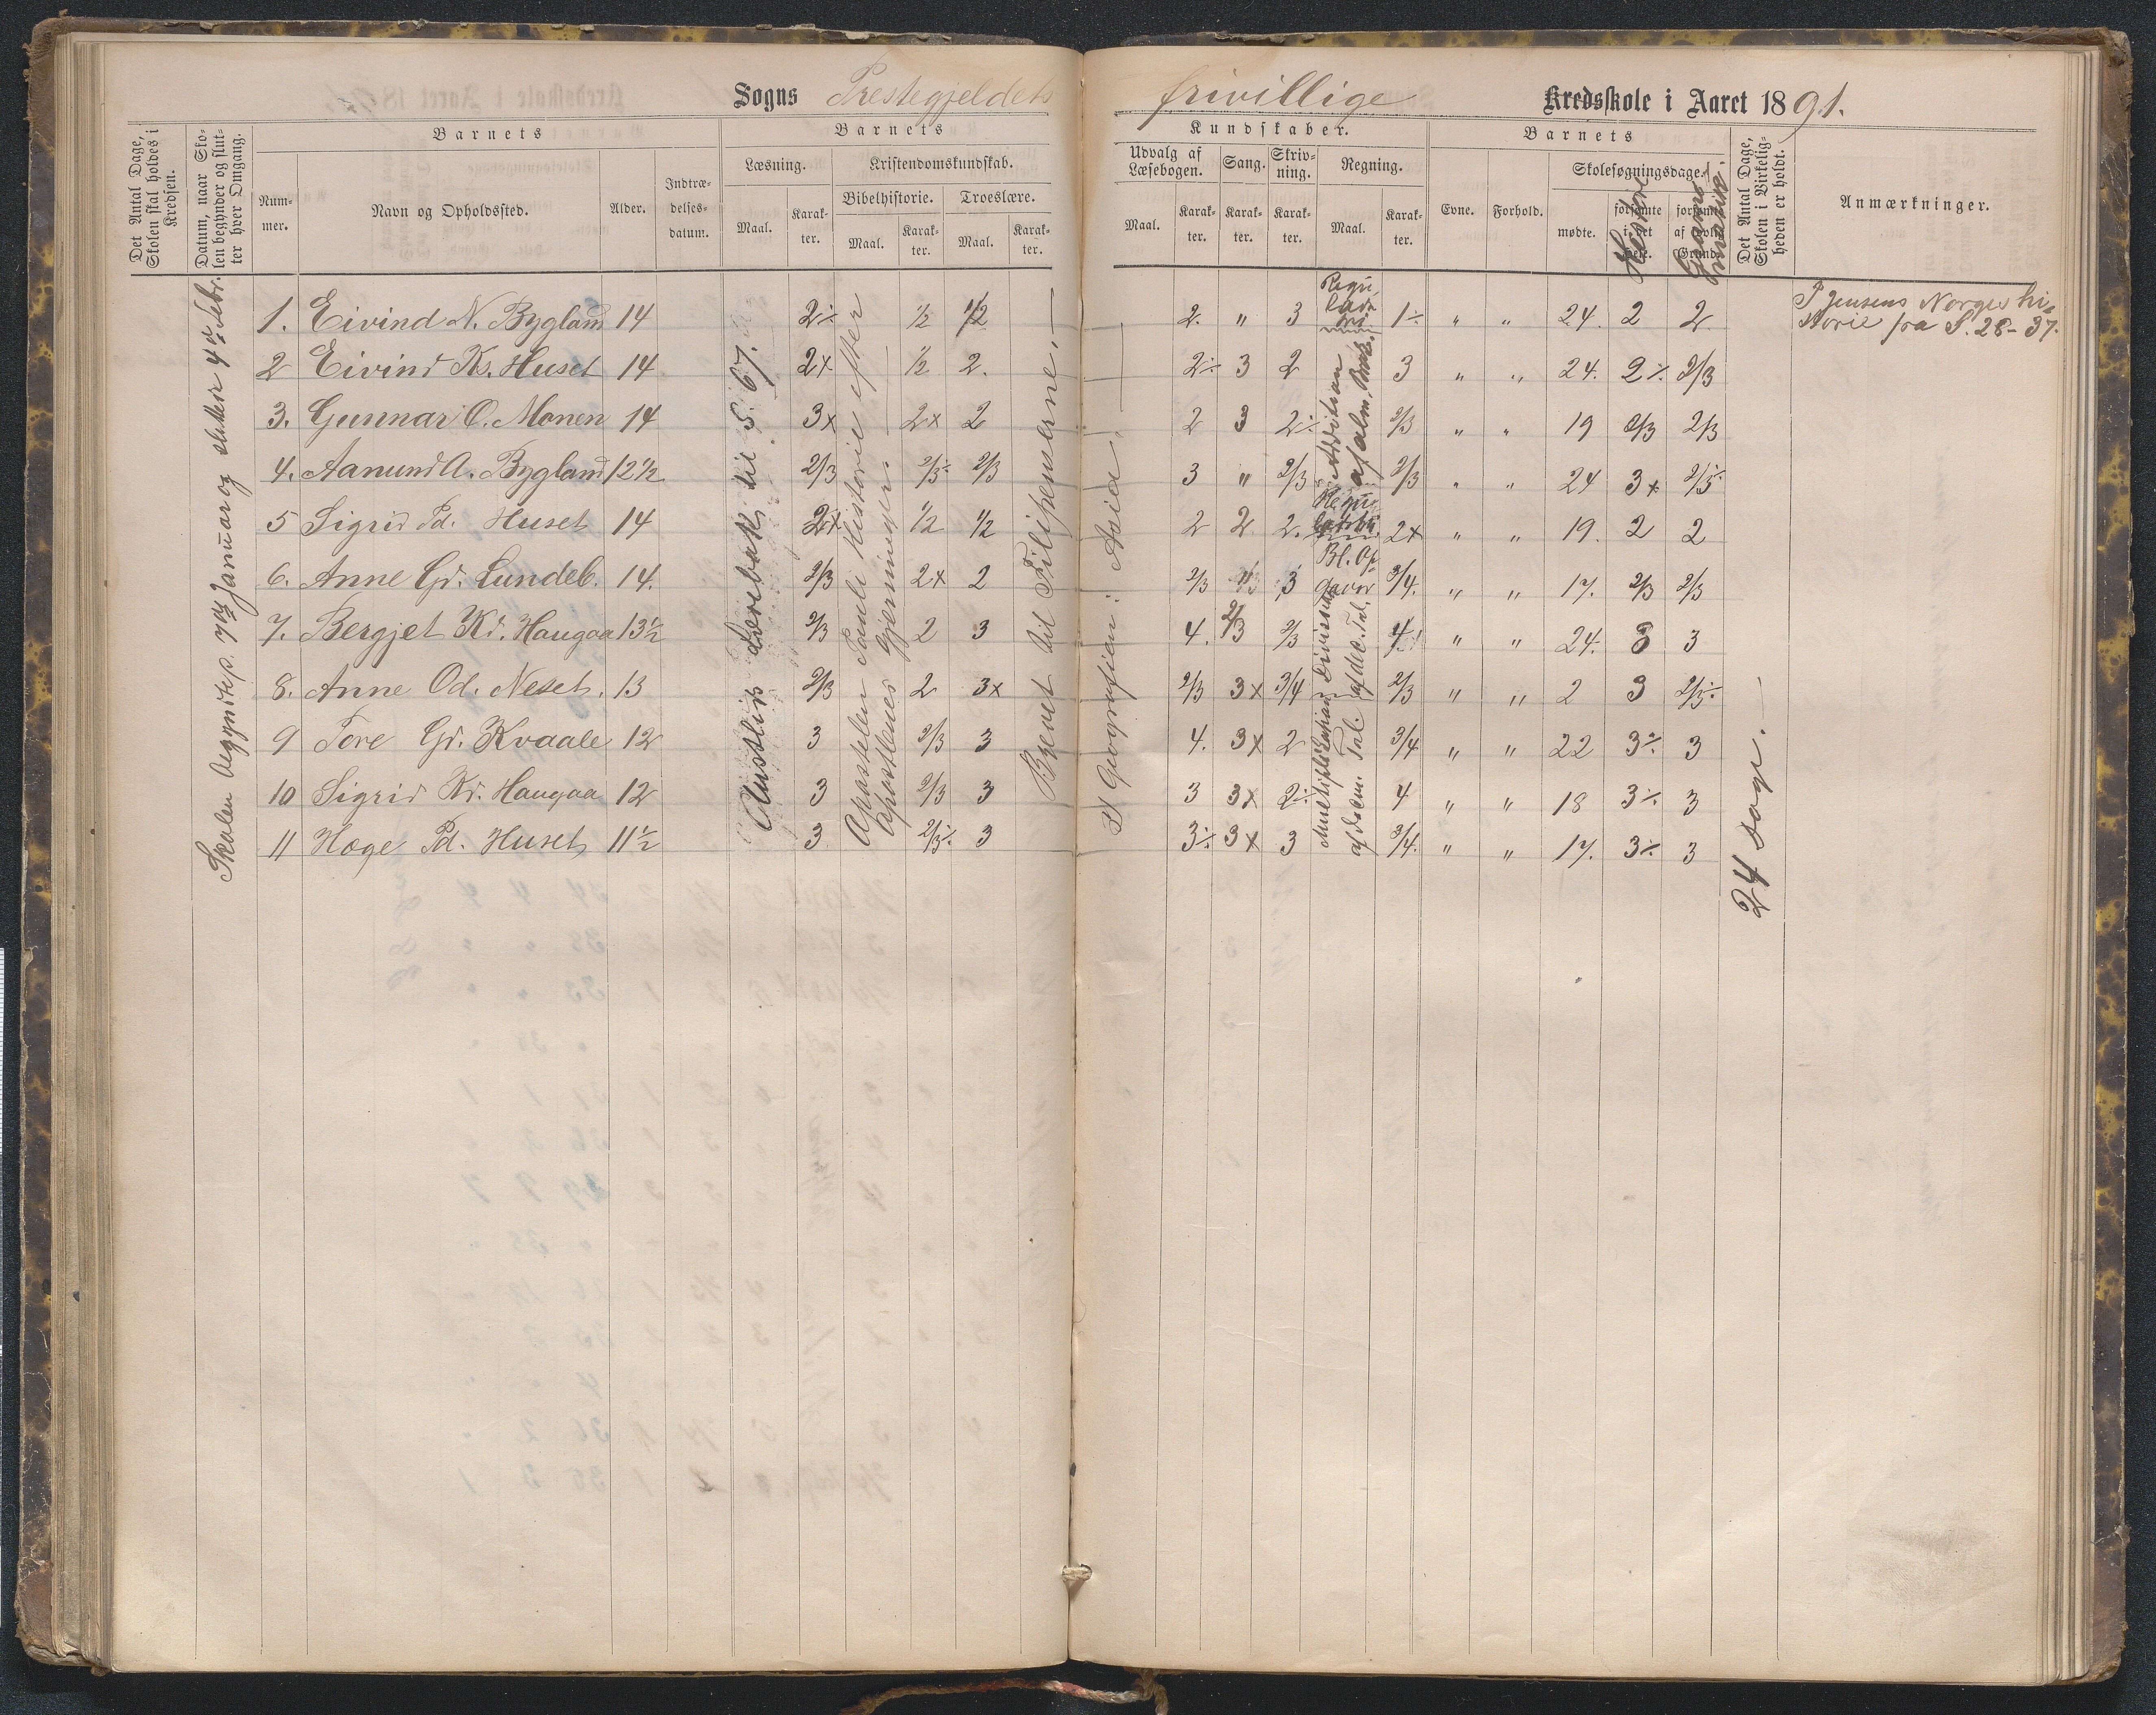 Sogns Prestegjeldets frivillige Kredsskole i Aaret 1891.
Det Antal Dage, Skolen skal holdes i Kredsen.
Datum, naar Skolen begynder og slutter hver Omgang.
Barnets
Nummer.
Navn og Opholdssted.
Alder.
Indtrædelsesdatum.
Barnets
Læsning.
Maal.
Karakter.
Kristendomskundskab.
Bibelhistorie.
Maal.
Karakter.
Troeslære.
Maal.
Karakter.
Kundskaber.
Udvalg af Læsebogen.
Maal.
Karakter.
Sang.
Karakter.
Skrivning.
Karakter.
Regning.
Maal.
Karakter.
Barnets
Evne.
Forhold.
Skolesøgningsdage.
mødte.
forsømte i det Hele.
forsømte af lovlig Grund.
Det Antal Dage, Skolen i Virkeligheden er holdt.
Anmærkninger.
1. Eivind N. Bygland 14 2÷ 1/2 1/2 2. " 3 1÷ " " 24. 2 2
2 Eivind Ks. Huset 14 2x 1/2 2. 2÷ 3 2 3 " " 24. 2÷ 2/3
3. Gunnar O. Monen 14 3x 2x 2 2 3 2÷ 2/3 " " 19 2/3 2/3
4. Aanund A. Bygland 12½ 2/3 2/3÷ 2/3 3 " 2/3 2/3 " " 24 3x 2/3÷
5 Sigrid Pd. Huset 14 2x 1/2 1/2 2 2 2. 2x " " 19. 2 2
6. Anne Gd. Lundeb. 14. 2/3 2x 2 2/3 3 3/4. " " 17. 2/3 2/3
7. Bergjet Kd. Haugaa 13½ 2/3 2 3 4. 2/3 2/3 4 " " 24. 3 3
8. Anne Od. Neset. 13 2/3 2 3x 2/3 3x 3/4 2/3 " " 2 3 2/3÷
9 Tore Gr. Kvaale 12 3 2/3 3 4. 3x 2 3/4 " " 22 3÷ 3
10 Sigrid Kd. Haugaa 12 3 2/3 3 3 3x 2÷ 4 " " 18 3÷ 3
11 Hæge Pd. Huset 11½ 3 2/3÷ 3 3÷ 3x 3 3/4. " " 17. 3÷ 3
Skolen begyndte p. 7de Januar og sluttede 4de Febr.
til S. 67.
Apostelen Pauli Historie efter
Apostlenes Gjerninger
Brevet til Filipenserne.
I Geografien: Asia.
Addition af alm. Brøk.
Multiplikation Division
af dec. Tal.
24 Dage.
Historie
P. Jensens Norges hi-
storie fra S. 28-37.